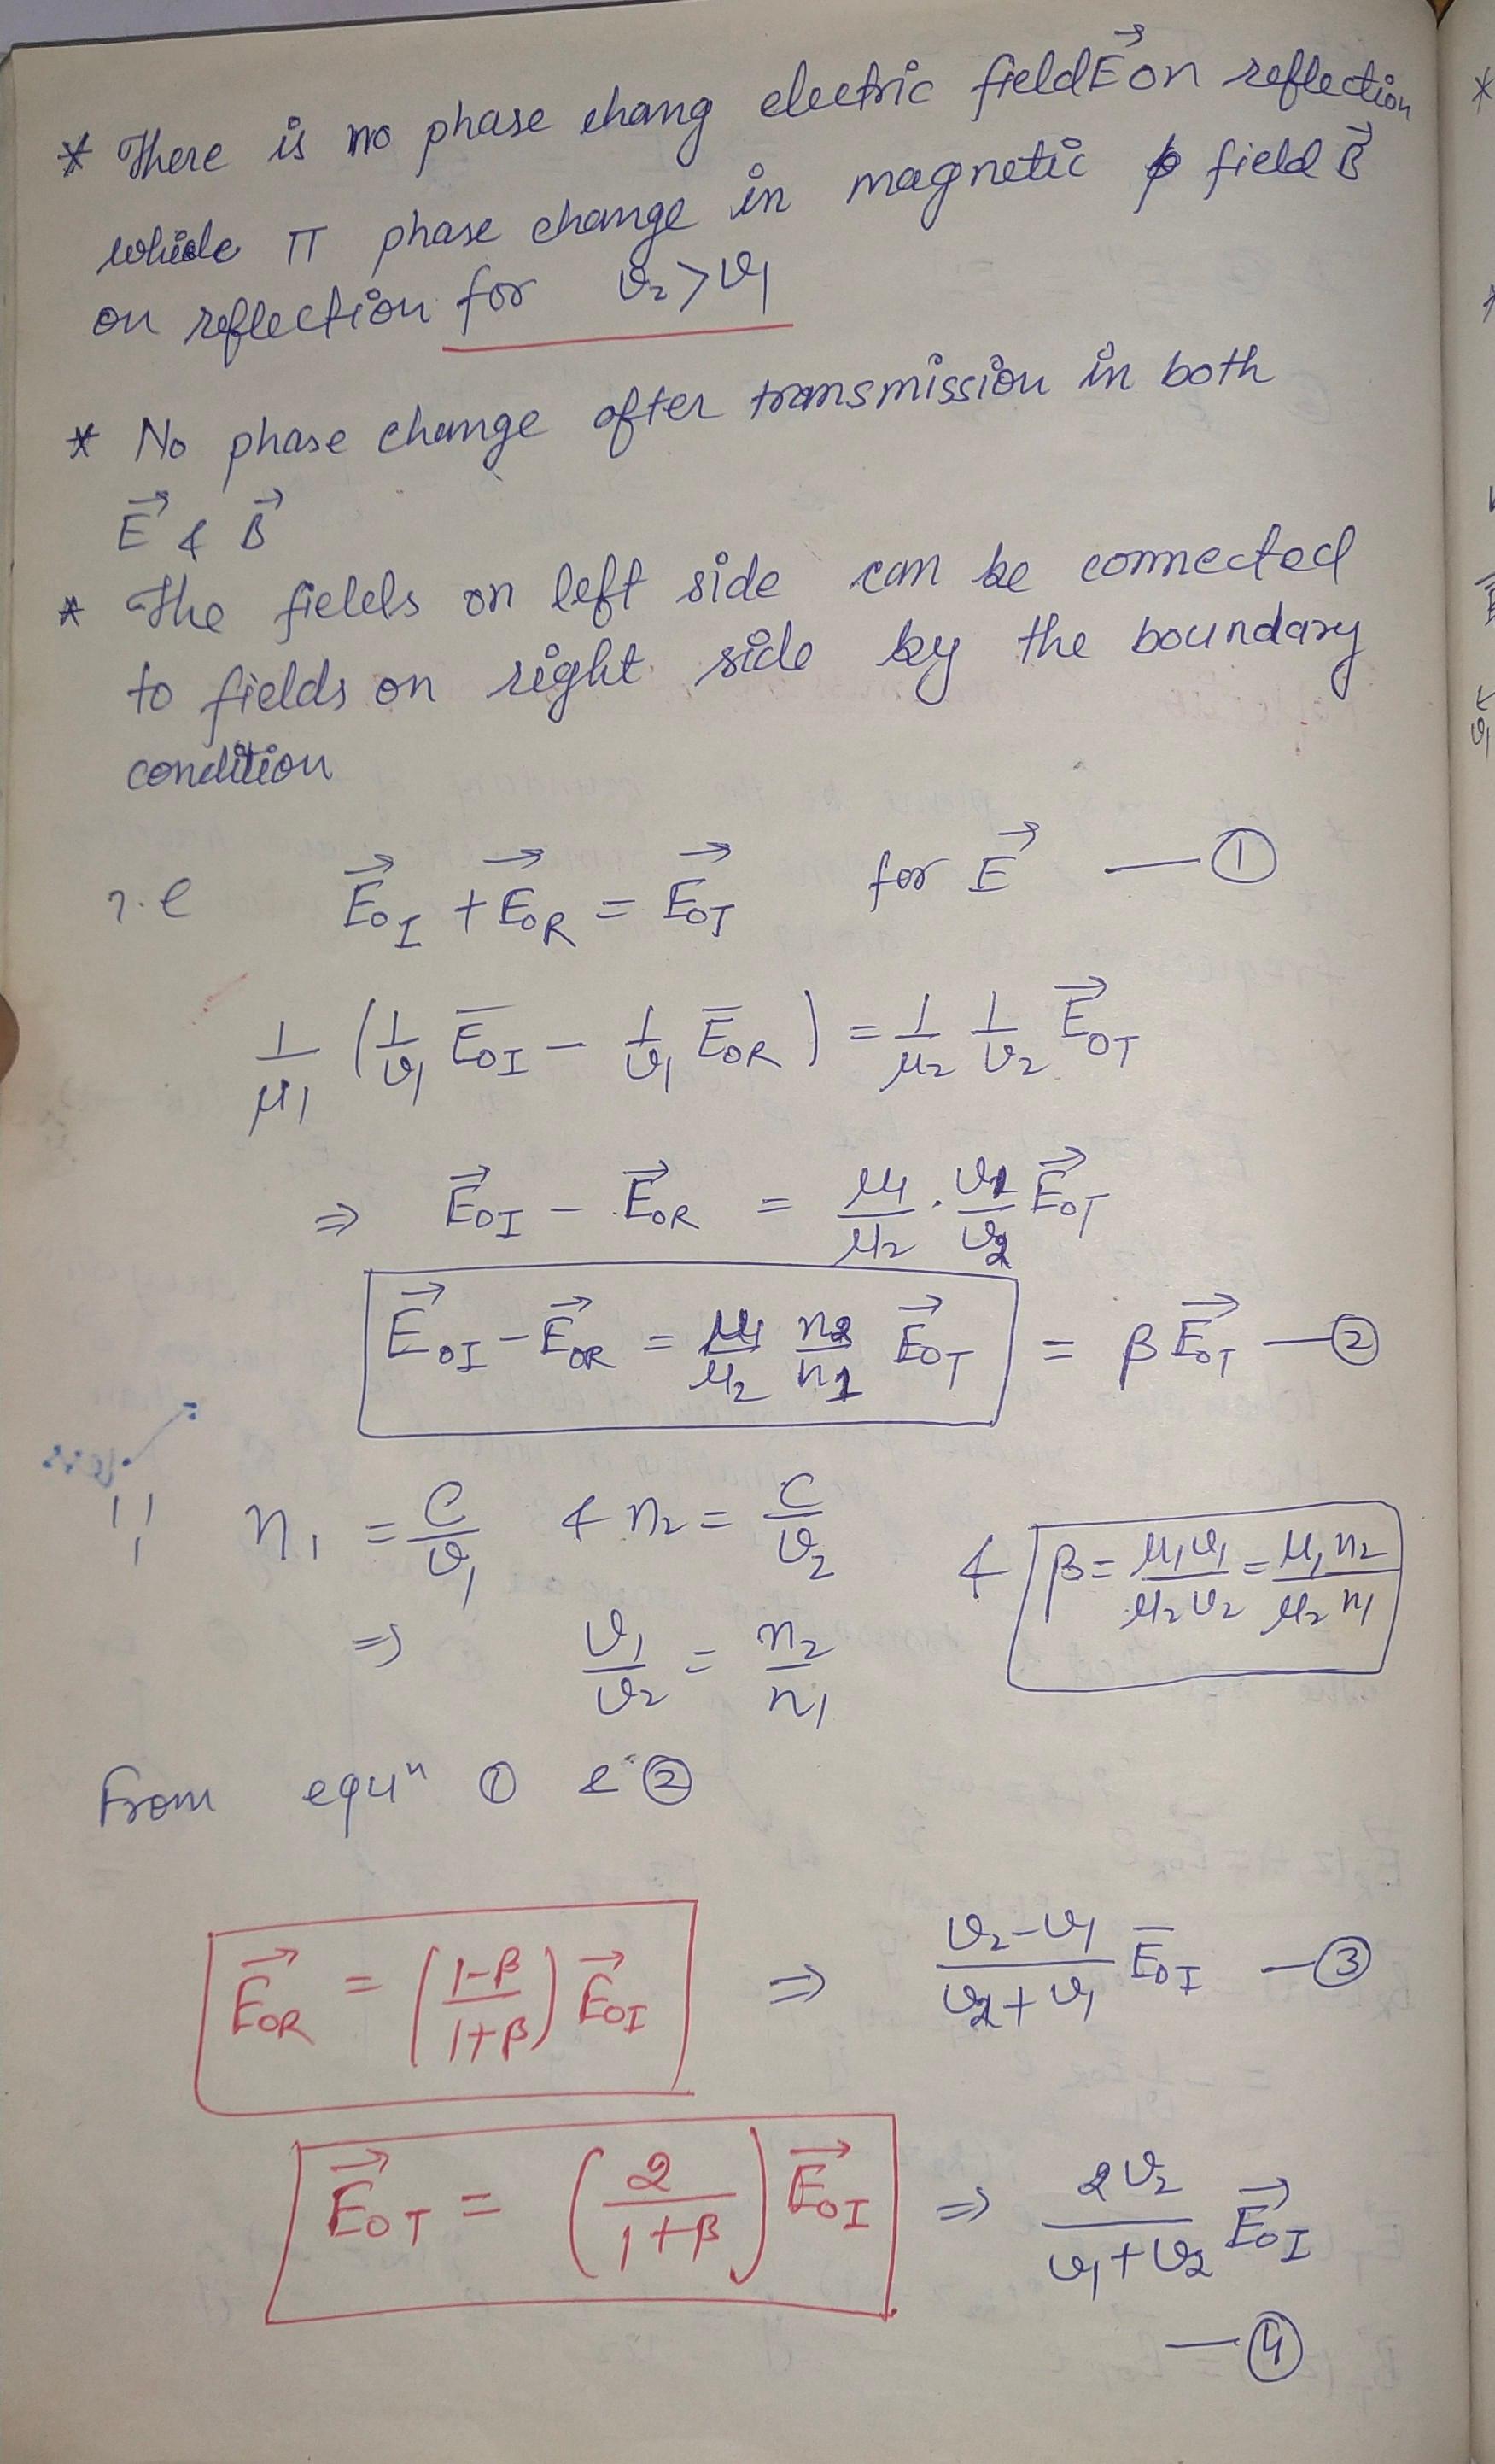 * There is no phase chang electric field E⃗ on reflection
while π phase change in magnetic field B⃗
on reflection for v₂ > v₁
* No phase change after transmission in both
E⃗ & B⃗
* The fields on left side can be connected
to fields on right side by the boundary
condition
i.e E⃗₀I + E⃗₀R = E⃗₀T for E⃗ — ①
1/μ₁ (1/v₁ E̅₀I − 1/v₁ E̅₀R) = 1/μ₂ 1/v₂ E⃗₀T
⇒ E⃗₀I − E⃗₀R = μ₁/μ₂ · v₁/v₂ E⃗₀T
E⃗₀I − E⃗₀R = μ₁/μ₂ n₂/n₁ E⃗₀T = β E⃗₀T — ②
∵ n₁ = c/v₁ & n₂ = c/v₂ & β = μ₁v₁/μ₂v₂ = μ₁n₂/μ₂n₁
⇒ v₁/v₂ = n₂/n₁
From equⁿ ① & ②
E⃗₀R = ((1−β)/(1+β)) E⃗₀I ⇒ (v₂−v₁)/(v₂+v₁) E̅₀I — ③
E⃗₀T = (2/(1+β)) E⃗₀I ⇒ 2v₂/(v₁+v₂) E⃗₀I
— ④